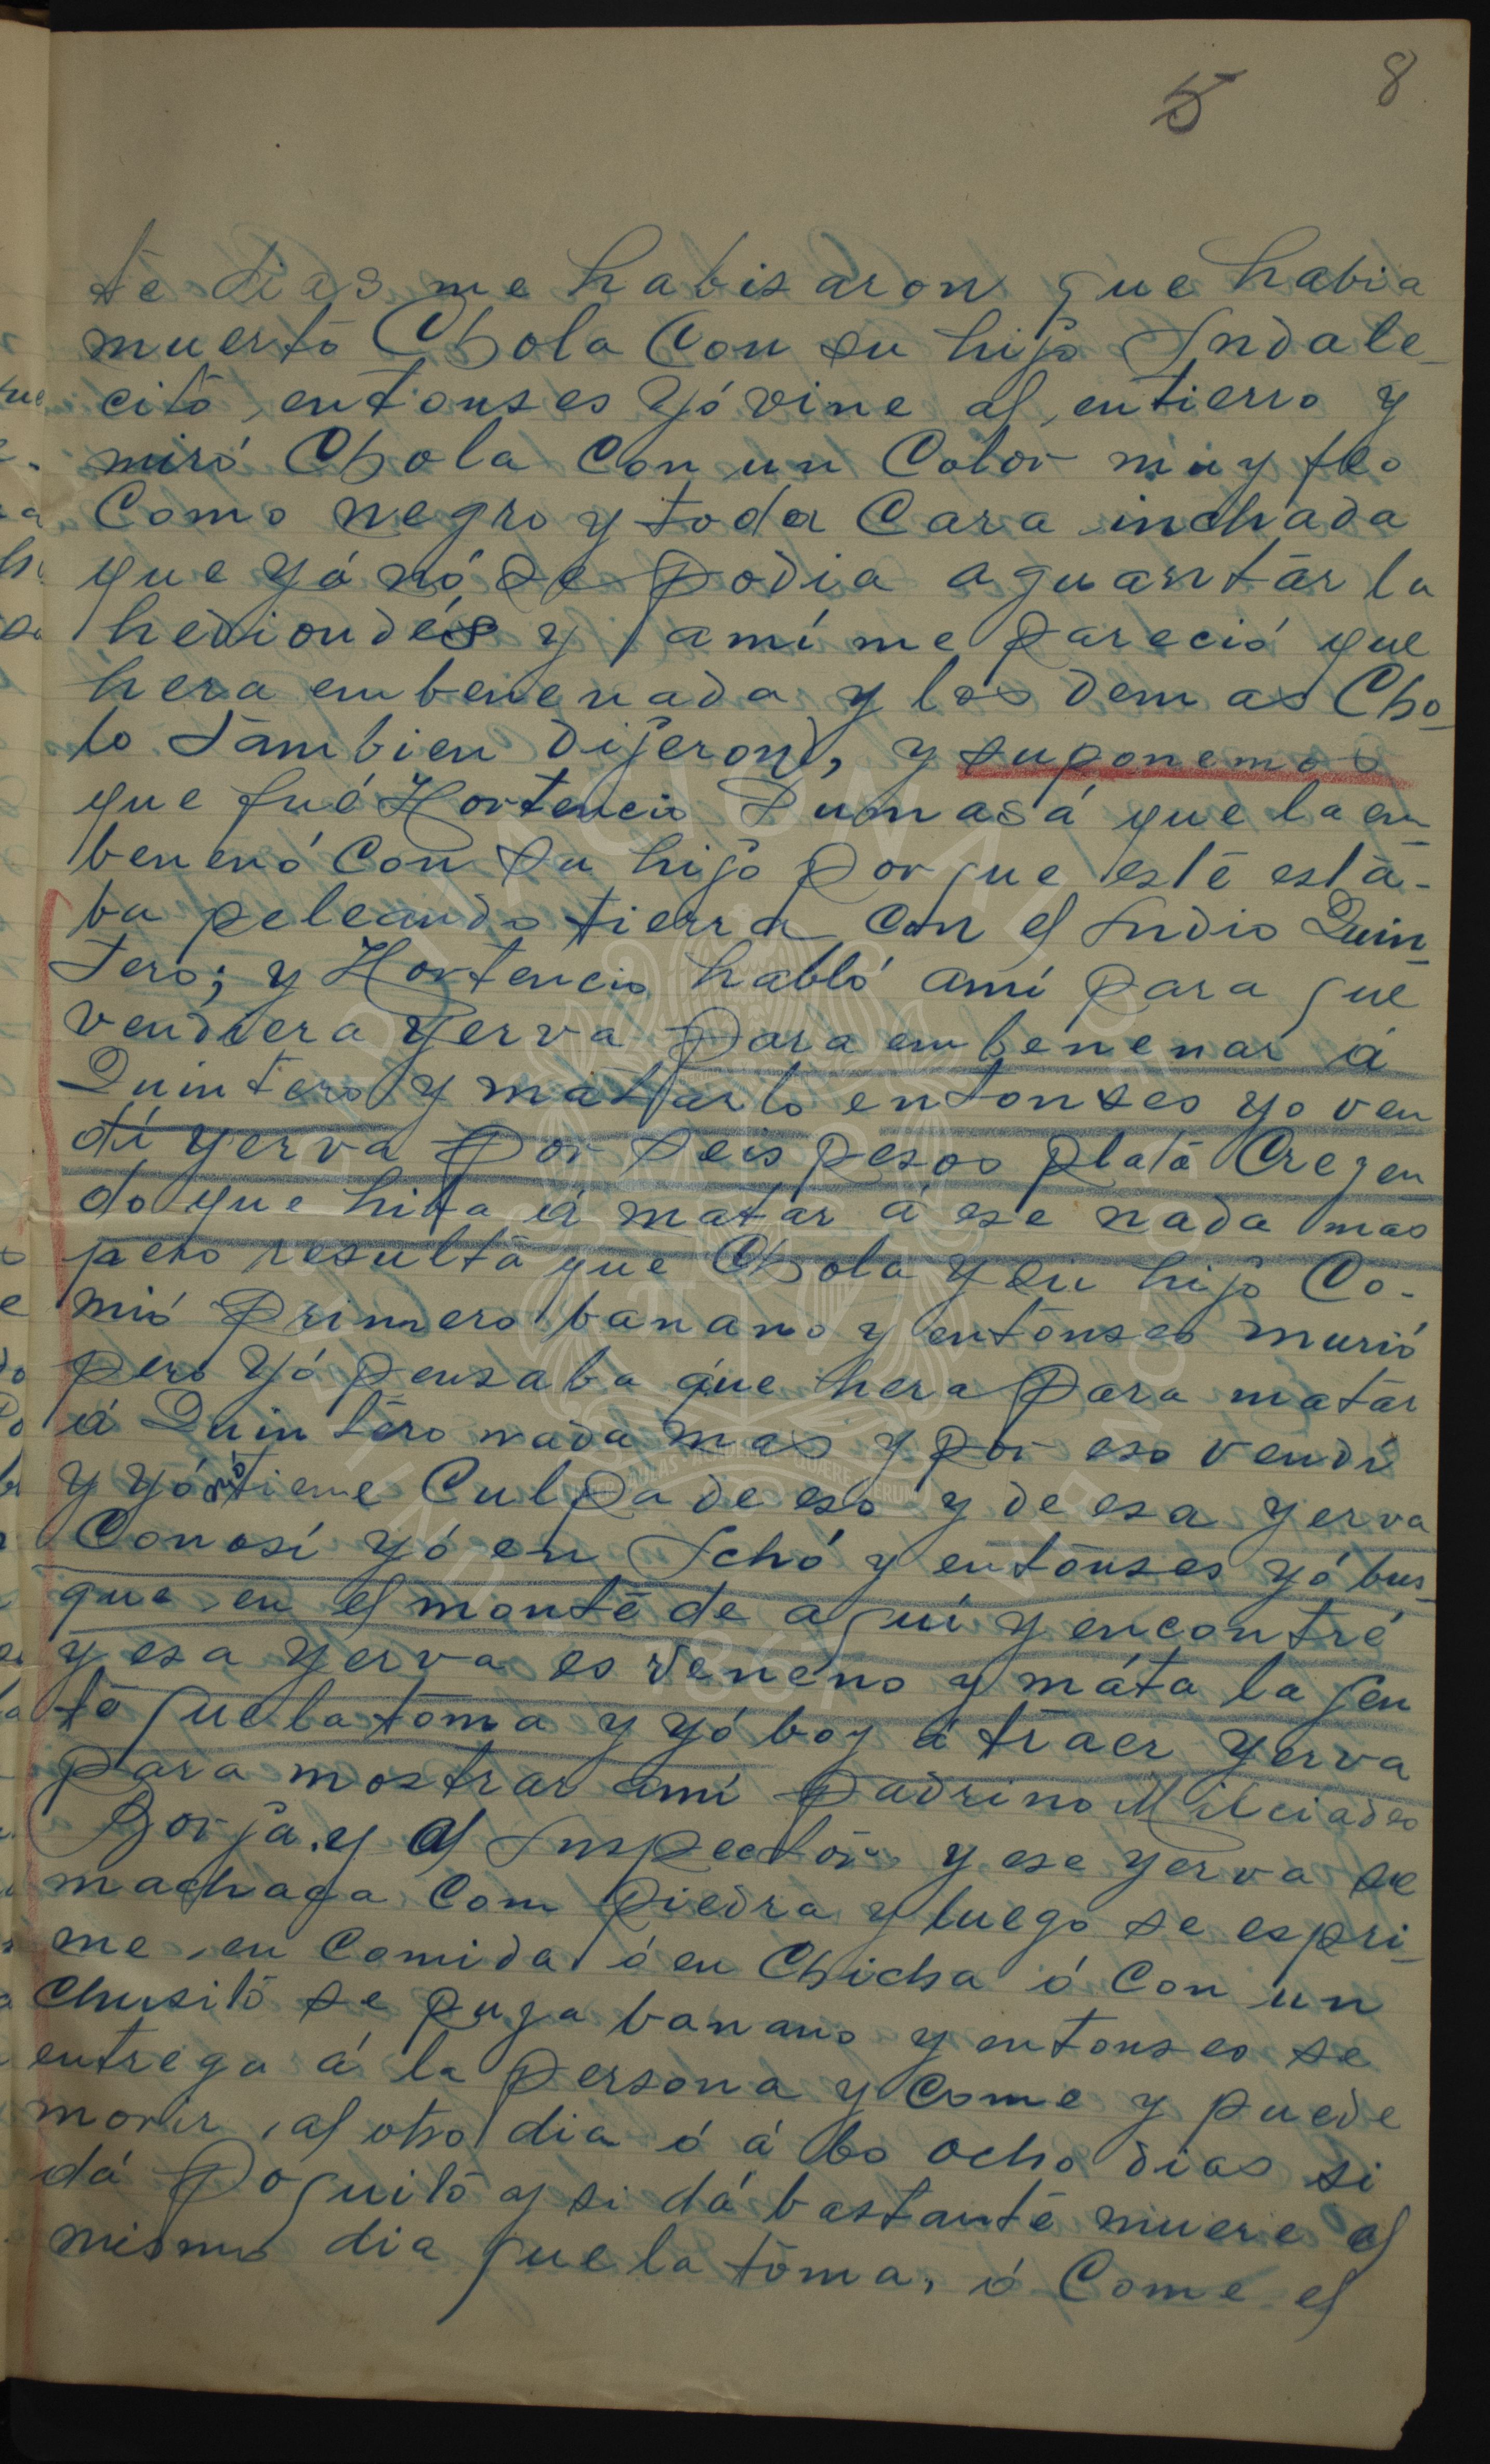 5 8
te dias me habisaron que habia
muerto Chola Con su hijo Indale-
cito, entonses Yó vine al entierro y
miró Chola Con un Color muy feo
Como negro y toda Cara inchada
que yá nó se podia aguantar la
hediondés y amí me pareció que
hera embenenada y los demas Cho-
lo tambien dijeron, y suponemos
que fué Hortencio Dumasá que la em
benenó Con su hijo porque este está-
ba peleando tierra Con el Indio Quin-
tero; y Hortencio habló amí para que
vendiera yerva para embenenar á
Quintero y matarlo entonses yo ven
dí yerva por seis pesos plata Creyen
do que hiba á matar á ese nada mas
pero resultá que Chola y su hijo Co-
mió primero banano y entonses murió
pero Yó pensaba que hera para matar
á Quintero nada mas y por eso vendí
y yó nó tiene Culpa de eso y de esa yerva
Conosí yó en Ichó y entonses yó bus-
que en el monte de aquí y encontré
y esa yerva es veneno y máta la jen
te que la toma y yó boy á traer yerva
para mostrar amí padrino Milciades
Borja y al Inspector y ese yerva se
machaca Com piedra y luego se espri-
me en Comida ó en Chicha ó Con un
Chusito se puya banano y entonses se
entrega á la persona y Come y puede
morir al otro dia ó á los ocho dias si
dá poquito y si dá bastante muere el
mismo dia que la toma, ó Come el